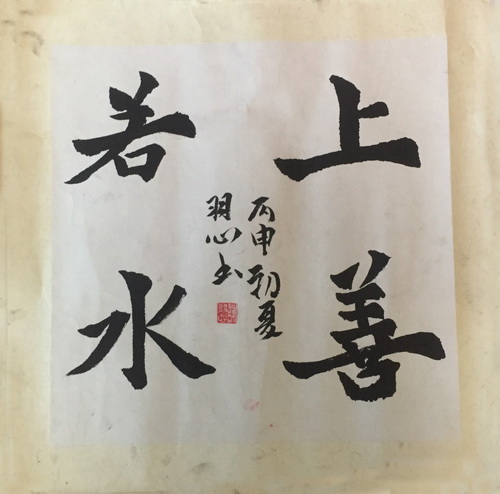 上善
若水
丙申初夏
羽心书